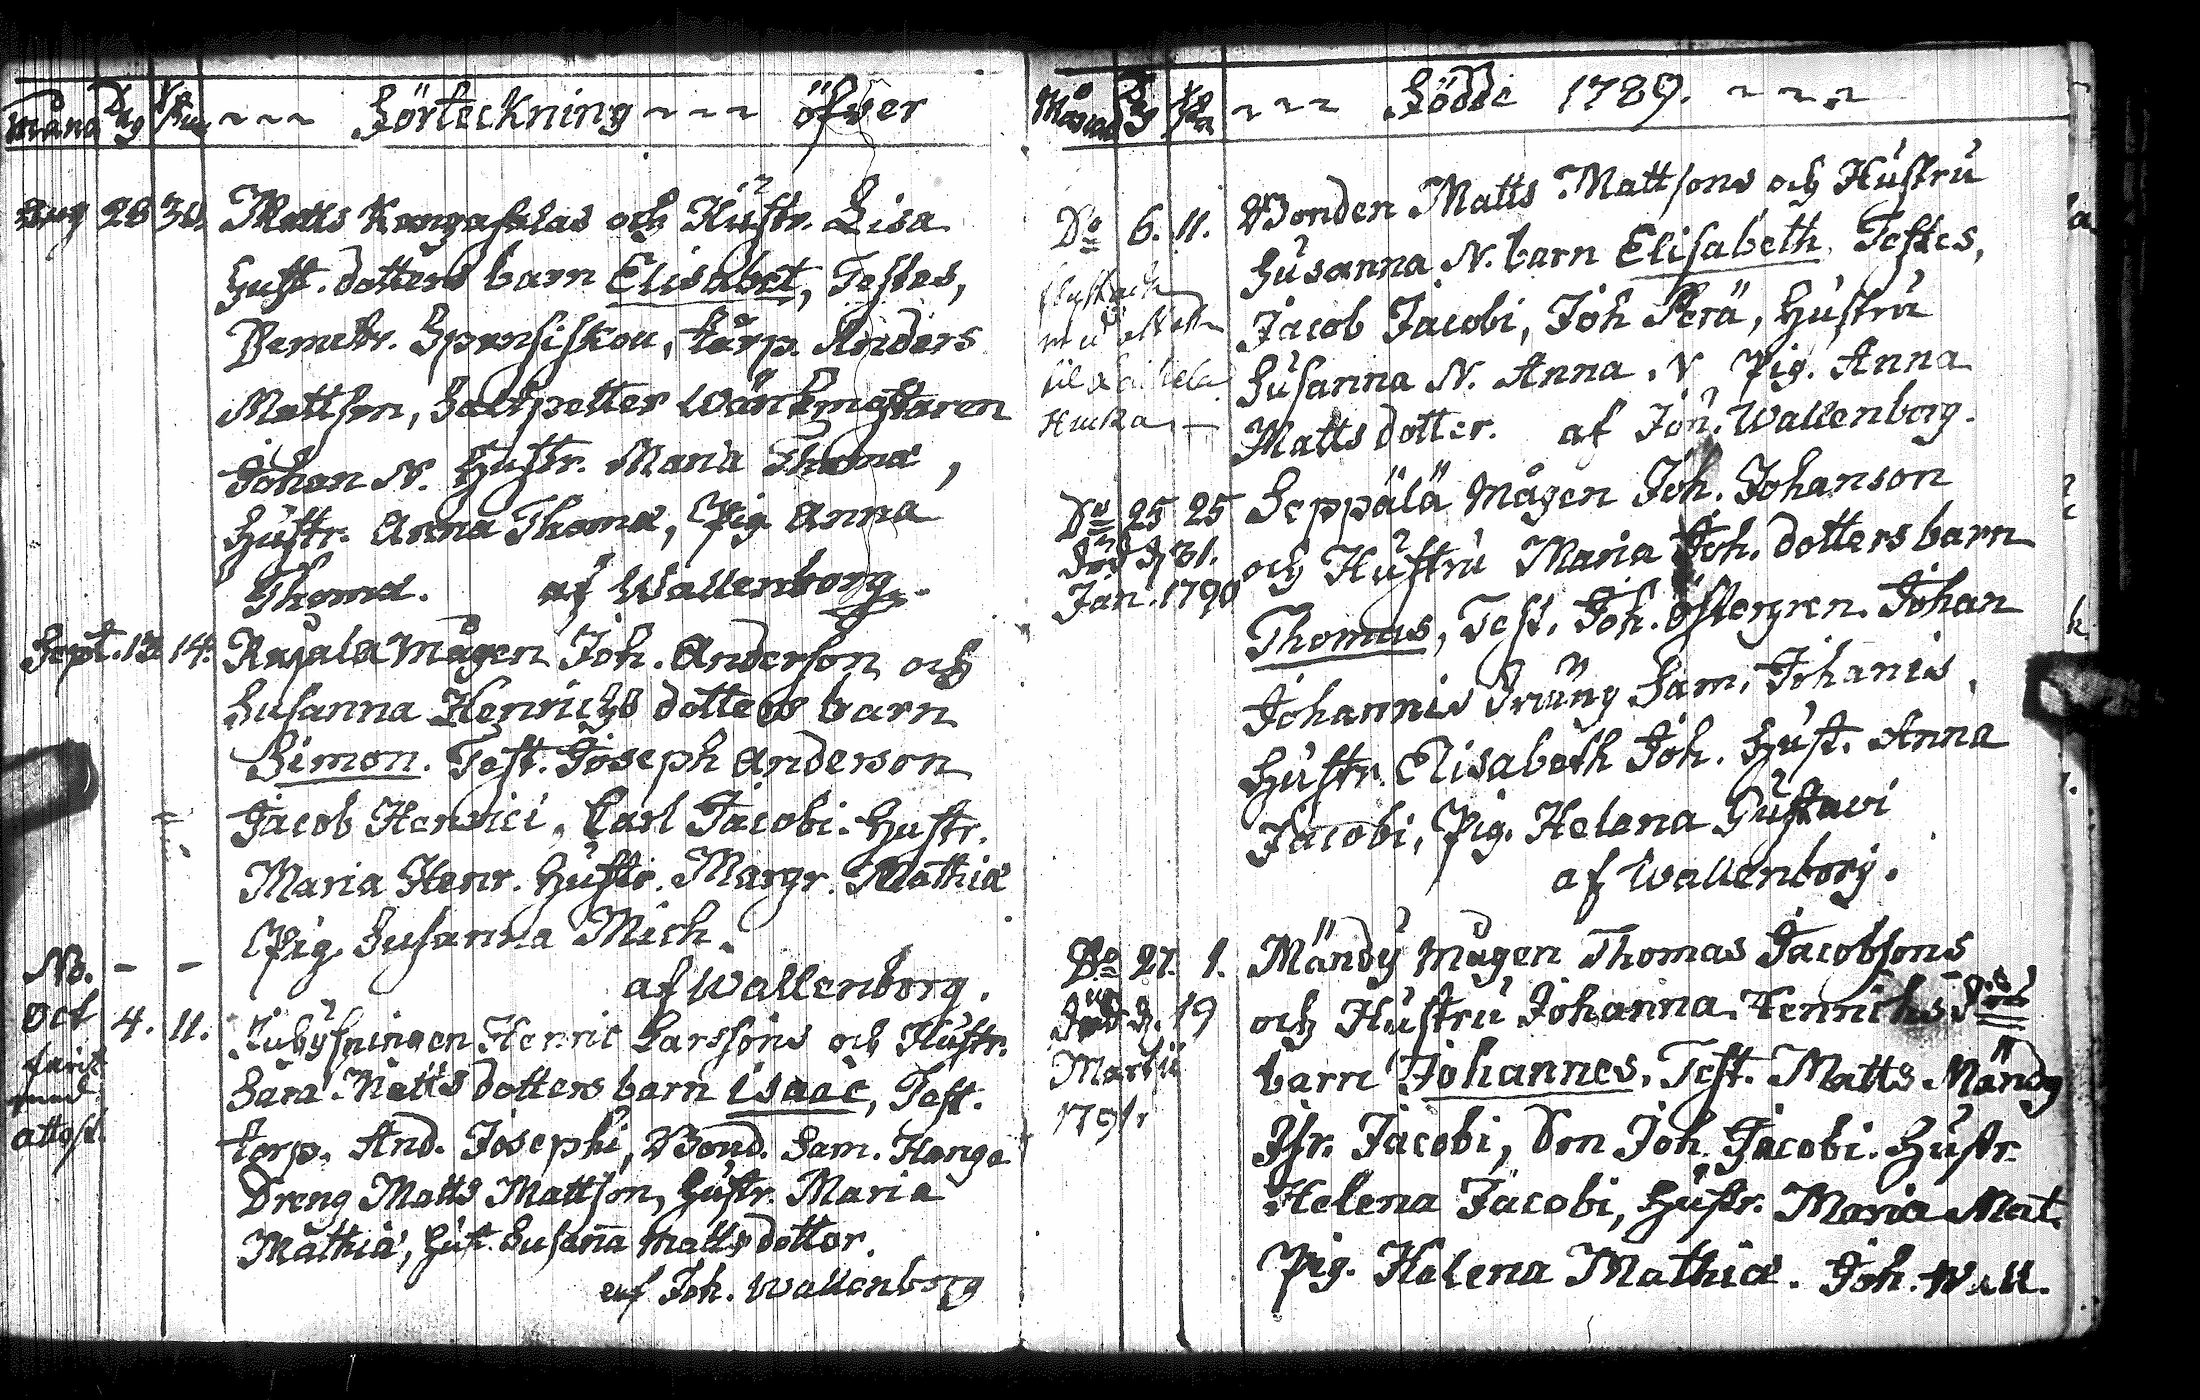 Månad Dag Kr. ~ ~ ~ Förteckning ~ ~ ~ öfver
Aug 28 30. Matts Kangasalas och Hustr. Lisa
Gust. dotters barn Elisabet, Testes,
torp. Anders
Mattson, Saltpetter Wärkmästaren
Johan N. Hustr. Maria Thomæ,
Hustr. Anna Thomæ, Pig. Anna
Thomæ. af Wallenborg.
Sept. 13 14. Rapala Mågen Joh. Anderson och
Susanna Henrichs dotters barn
Simon. Test. Joseph Anderson
Jacob Henrici, Carl Jacobi. Hustr.
Maria Henr. Hustr. Margr. Mathiæ
Pig. Susanna Mich.
af Wallenborg.
No. - -
Oct 4. 11. Henric Larssons och Hustr.
Sara Matts dotters barn Isaac, Test.
med
attest.
torp. And. Josephi, Bond. Sam. Kanga
Dreng Matts Mattson, Hustr. Maria
Mathiæ, Hust. Susanna Matts dotter.
af Joh. Wallenborg
Månad Dag ~ ~ ~ Födde 1789. ~ ~ ~
Do 6. 11. Bonden Matts Mattsons och Hustru
Susanna N. barn Elisabeth. Testes,
Jacob Jacobi, Joh Perä, Hustru
Susanna N. Anna. N Pig. Anna
Matts dotter. af Joh. Wallenborg.
Do 25 25 Seppälä Mågen Joh. Johanson
död d. 31.
Jan. 1790
och Hustru Maria Joh. dotters barn
Thomas, Test. Joh. Östergren. Johan
Johannis Dräng Sam. Johanis.
Hustr. Elisabeth Joh. Hust. Anna
Jacobi, Pig. Helena Gustavi
af Wallenborg.
Do 27. 1. Mändy Mågen Thomas Jacobsons
död d. 19
Martii
och Hustru Johanna Henrichs
barn Johannes. Test. Matts Mändy
Jacobi, Son Joh. Jacobi. Hustr.
Helena Jacobi, Hustr. Maria Mat.
Pig. Helena Mathiæ. Joh. Wall.